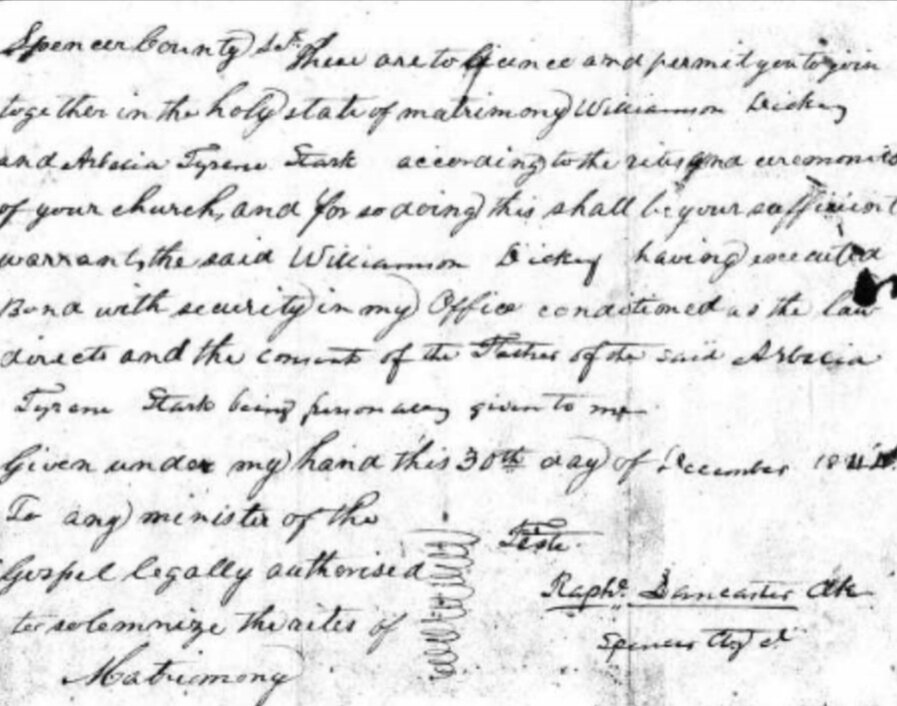 Spencer County Sct. These are to licence and permit you to join
together in the holy state of matrimony Williamson Dickey
and Arbelia Tyrene Stark according to the rites and ceremonies
of your church, and for so doing this shall be your sufficient
warrant, the said Williamson Dickey having executed
Bond with security in my Office conditioned as the law
directs and the consent of the Father of the said Arbelia
Tyrene Stark being personally given to me
Given under my hand this 30th day of December
To any minister of the
Gospel legally authorised
to solemnize the rites of
Matrimony
Teste.
Raphl. Lancaster Clk
Spencer Cty Ct